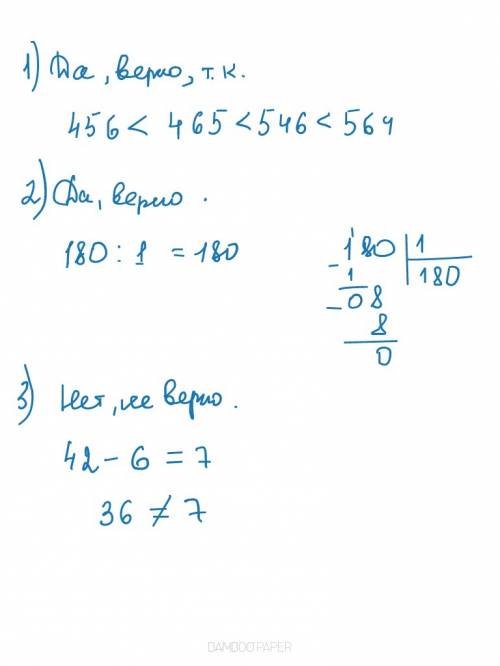 1) Да, верно, т.к.
456 < 465 < 546 < 564
2) Да, верно.
180 : 1 = 180
180 | 1
- 1 | 180
- 08
8
0
3) Нет, не верно.
42 - 6 = 7
36 ≠ 7
BAMBOOPAPER